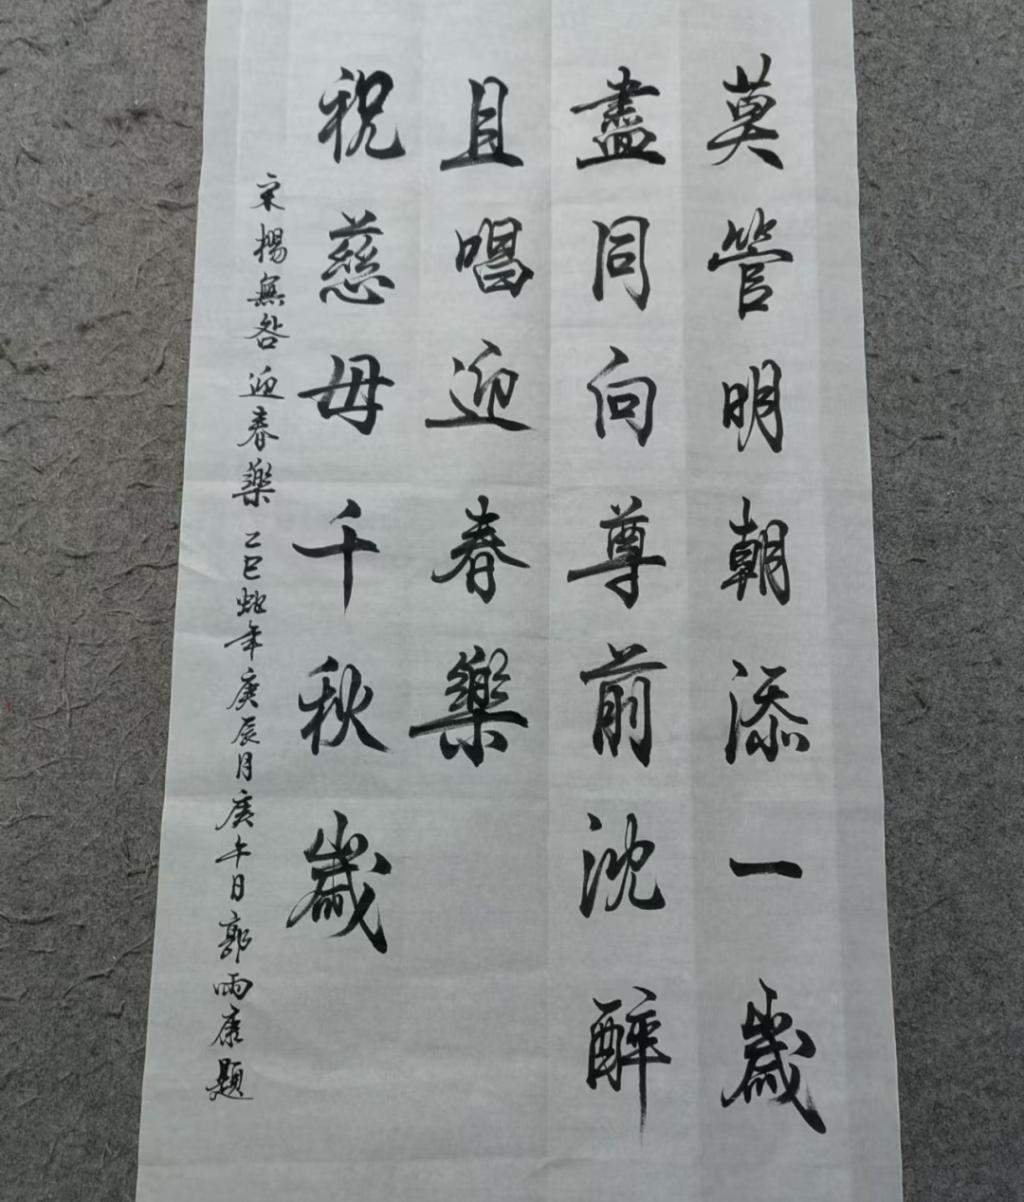 莫管明朝添一歲
盡同向尊前沈醉
且唱迎春樂
祝慈母千秋歲
宋楊無咎迎春樂乙巳蛇年庚辰月庚午日郭雨康題